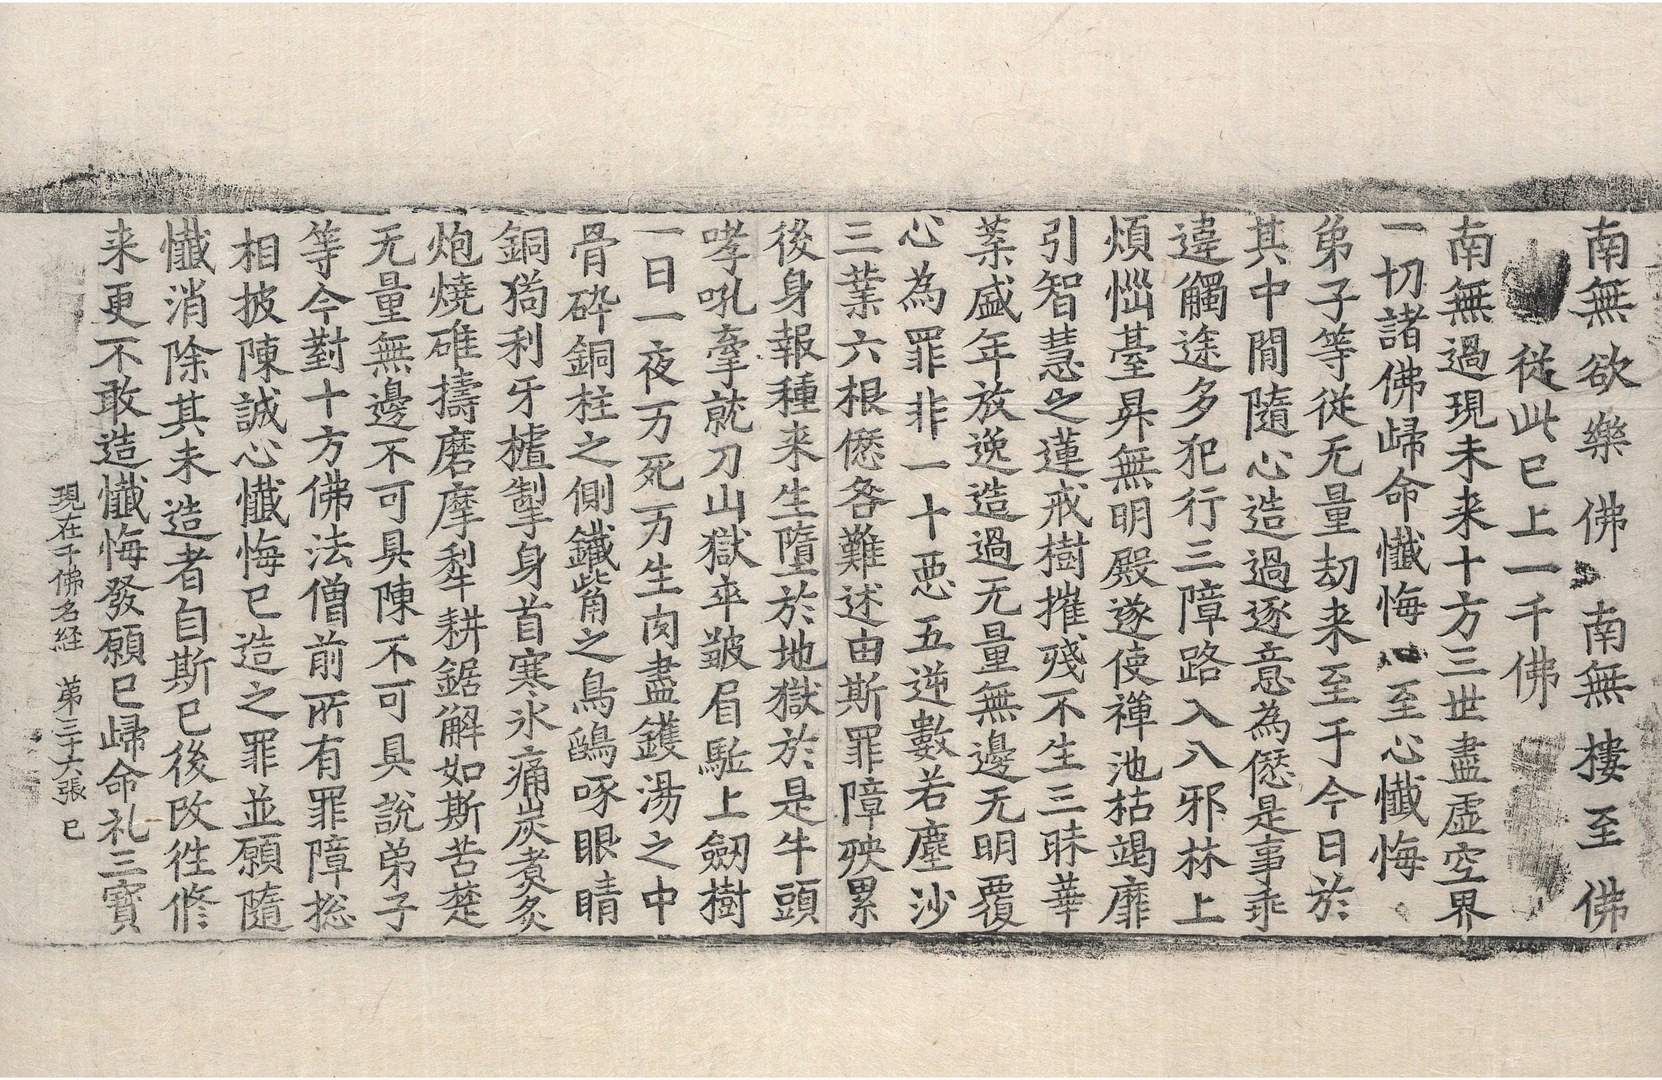 南無欲樂佛 南無樓至佛
從此已上一千佛
南無過現未来十方三世盡虛空界
一切諸佛歸命懺悔 至心懺悔
弟子等従无量劫来至于今日於
其中閒隨心造過逐意為𠎝是事乖
違觸途多犯行三障路入八邪林上
煩惱臺昇無明殿遂使禅池枯竭靡
引智慧之蓮戒樹摧殘不生三昧華
葉盛年放逸造過无量無邊无明覆
心為罪非一十惡五逆數若塵沙
三業六根𠎝咎難述由斯罪障殃累
後身報種来生墮於地獄於是牛頭
哮吼牽就刀山獄卒皺眉駈上劒樹
一日一夜万死万生肉盡鑊湯之中
骨碎銅柱之側鐵觜之鳥鵄啄眼睛
銅狗利牙樝掣身首寒氷痛炭煮炙
炮燒碓擣磨摩犁耕鋸解如斯苦楚
无量無邊不可具陳不可具說弟子
等今對十方佛法僧前所有罪障捴
相披陳誠心懺悔已造之罪並願隨
懺消除其未造者自斯已後改往修
来更不敢造懺悔發願已歸命礼三寳
現在千佛名経 苐三十六張 已